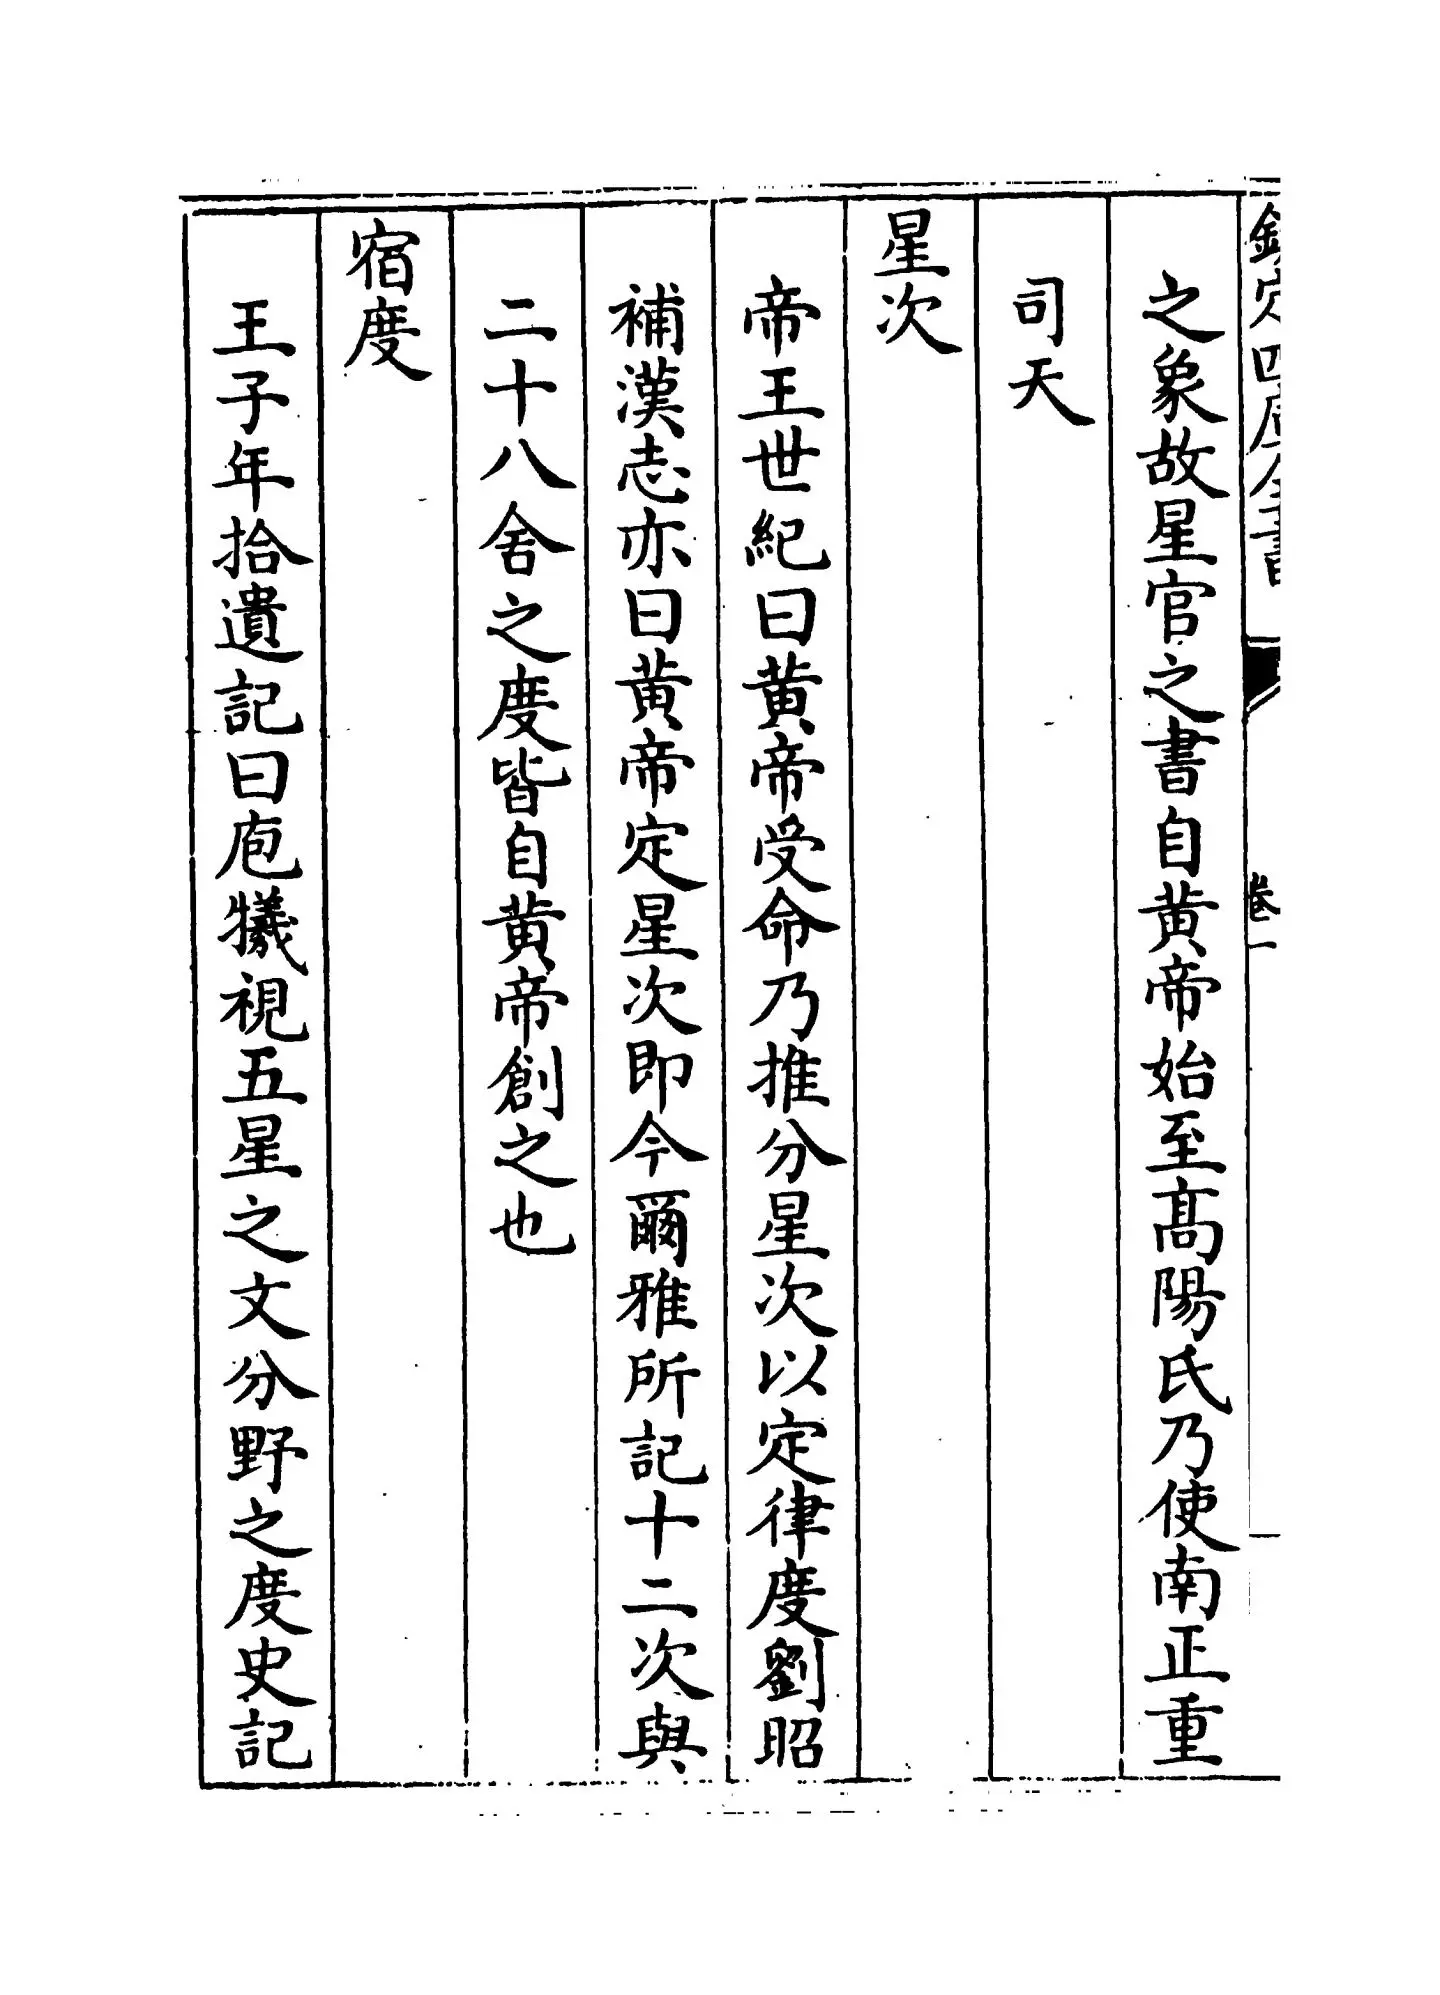 欽定四庫全書
卷一
之象故星官之書自黄帝始至髙陽氏乃使南正重
司天
星次
帝王世紀曰黄帝受命乃推分星次以定律度劉昭
補漢志亦曰黄帝定星次即今爾雅所記十二次與
二十八舍之度皆自黄帝創之也
宿度
王子年拾遺記曰庖犧視五星之文分野之度史記